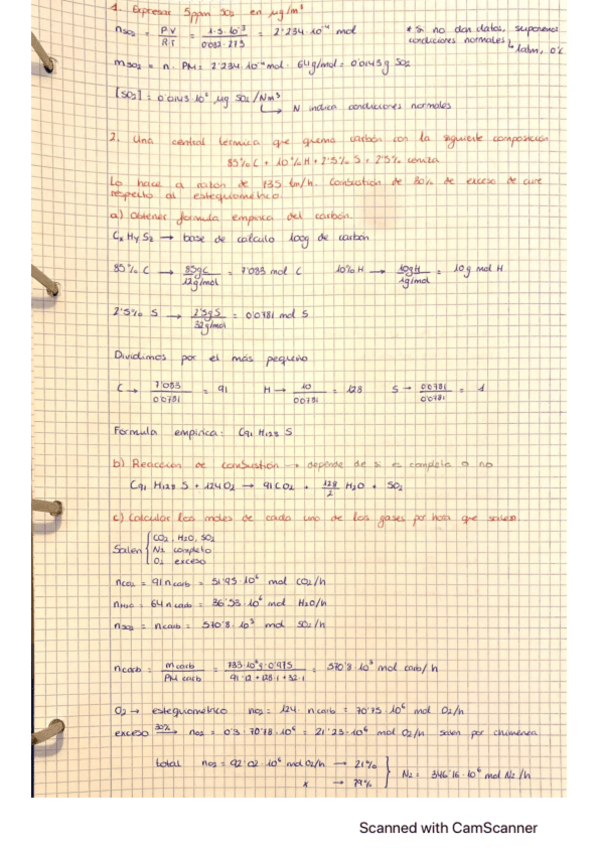 1. Expresar 5ppm SO2 en µg/m³
nSO2 = P·V / R·T = 1·5·10⁻³ / 0'082·273 = 2'234·10⁻⁴ mol
* Si no dan datos, suponemos
condiciones normales
↳ 1atm, 0ºC
mSO2 = n · PM = 2'234·10⁻⁴ mol · 64g/mol = 0'0143g SO2
[SO2] = 0'0143·10⁶ µg SO2/Nm³
↳ N indica condiciones normales
2. Una central térmica que quema carbón con la siguiente composición
85% C + 10% H + 2'5% S + 2'5% ceniza
Lo hace a razón de 735 tm/h. Combustión de 30% de exceso de aire
respecto al estequiométrico
a) Obtener fórmula empírica del carbón.
Cx Hy Sz → base de cálculo 100g de carbón
85% C → 85gC / 12g/mol = 7'083 mol C 10% H → 10gH / 1g/mol = 10g mol H
2'5% S → 2'5gS / 32g/mol = 0'0781 mol S
Dividimos por el más pequeño
C → 7'083 / 0'0781 = 91 H → 10 / 0'0781 = 128 S → 0'0781 / 0'0781 = 1
Fórmula empírica: C91 H128 S
b) Reacción de combustión → depende de si es completa o no
C91 H128 S + 124O2 → 91CO2 + 128/2 H2O + SO2
c) Calcular los moles de cada uno de los gases por hora que salen.
Salen { CO2, H2O, SO2
N2 completo
O2 exceso
nCO2 = 91 ncarb = 51'95·10⁶ mol CO2/h
nH2O = 64 ncarb = 36'53·10⁶ mol H2O/h
nSO2 = ncarb = 570'8·10³ mol SO2/h
ncarb = mcarb / PM carb = 735·10⁶g·0'975 / 91·12+128·1+32·1 = 570'8·10³ mol carb/h
O2 → estequiométrico nO2 = 124·ncarb = 70'78·10⁶ mol O2/h
exceso 30% → nO2 = 0'3·70'78·10⁶ = 21'23·10⁶ mol O2/h salen por chimenea
total nO2 = 92'02·10⁶ mol O2/h → 21%
x → 79% } N2 = 346'16·10⁶ mol N2/h
Scanned with CamScanner